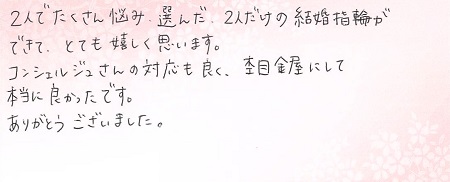 2人でたくさん悩み、選んだ、2人だけの結婚指輪が
できて、とても嬉しく思います。
コンシェルジュさんの対応も良く、杢目金屋にして
本当に良かったです。
ありがとうございました。